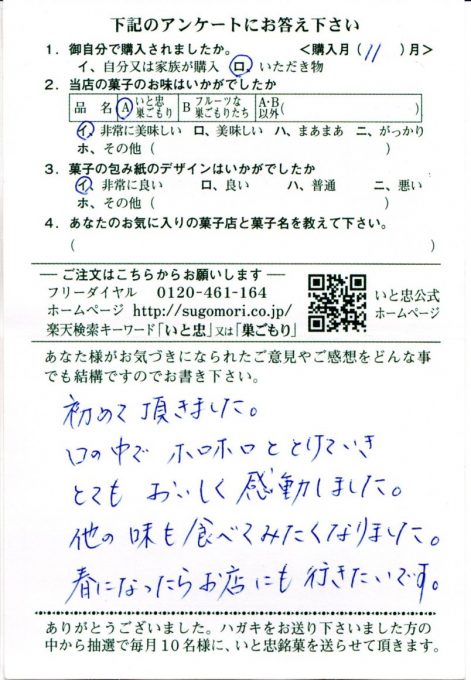 下記のアンケートにお答え下さい
1. 御自分で購入されましたか。 <購入月( 11 )月>
イ、自分又は家族が購入 ロ、いただき物
2. 当店の菓子のお味はいかがでしたか
品 名 A いと忠巣ごもり B フルーツな巣ごもりたち A·B以外( )
イ、非常に美味しい ロ、美味しい ハ、まあまあ ニ、がっかり
ホ、その他( )
3. 菓子の包み紙のデザインはいかがでしたか
イ、非常に良い ロ、良い ハ、普通 ニ、悪い
ホ、その他( )
4. あなたのお気に入りの菓子店と菓子名を教えて下さい。
( )
― ご注文はこちらからお願いします ―
フリーダイヤル 0120-461-164
ホームページ http://sugomori.co.jp/
楽天検索キーワード「いと忠」又は「巣ごもり」
いと忠公式
ホームページ
あなた様がお気づきになられたご意見やご感想をどんな事
でも結構ですのでお書き下さい。
初めて頂きました。
口の中で ホロホロととけていき
とても おいしく 感動しました。
他の味も食べてみたくなりました。
春になったらお店にも行きたいです。
ありがとうございました。ハガキをお送り下さいました方の
中から抽選で毎月10名様に、いと忠銘菓を送らせて頂きます。